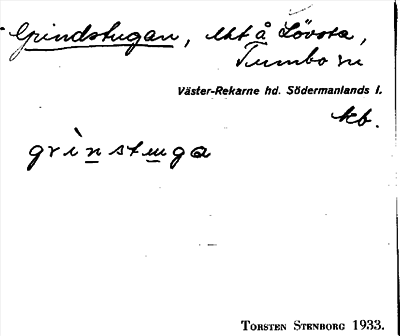 Grindstugan, lht å Lövsta,
Tumbo sn
Väster-Rekarne hd. Södermanlands l.
kb.
grìnstuga
TORSTEN STENBORG 1933.